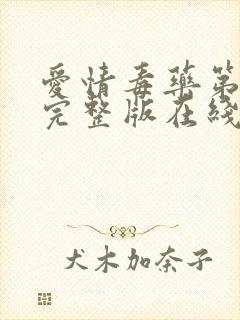 愛情毒藥第
完整版在綫
犬木加奈子